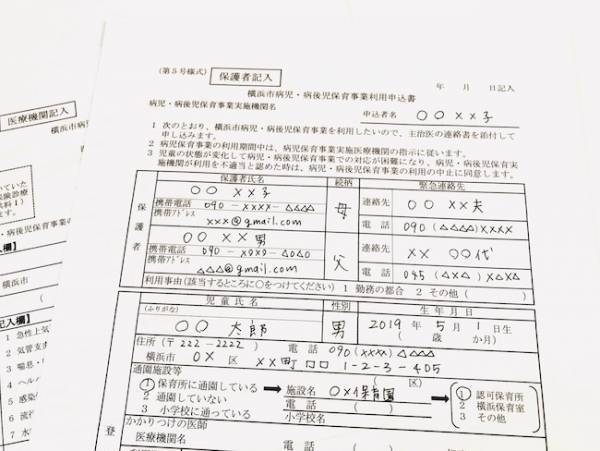 (第5号様式) 保護者記入
年 月 日記入
横浜市病児・病後児保育事業利用申込書
病児・病後児保育事業実施機関名
申込者名 〇〇 ××子
1 次のとおり、横浜市病児・病後児保育事業を利用したいので、主治医の連絡書を添付して
申し込みます。
2 病児保育事業の利用期間中は、病児保育事業実施医療機関の指示に従います。
3 児童の状態が変化して病児・病後児保育事業での対応が困難になり、病児・病後児保育実
施機関が利用を不適当と認めた時は、病児・病後児保育事業の利用の中止に同意します。
保護者氏名 続柄 緊急連絡先
保護者
〇〇 ××子 母 連絡先 〇〇 ××夫
携帯電話 090 - ×××× - △△△△
電話 090 (△△△△) ××××
携帯アドレス ×××@gmail.com
〇〇 ××男 父 連絡先 ×× 〇〇代
携帯電話 090 - ×××× - △〇△〇
電話 045 (△×△) ×△×△
携帯アドレス △△△@gmail.com
利用事由(該当するところに〇をつけてください) 1 勤務の都合 2 その他( )
児童氏名 性別 生年月日
(ふりがな)
〇〇 太郎 男 2019年 5月 1日生
( 歳 か月)
住所(〒222-2222) 電話 090 (××××) △△△△
横浜市 〇× 区 ××町 □□ 1-2-3-405
通園施設等 ( 区)
① 保育所に通園している → 施設名 〇×保育園 → ① 認可保育所
2 通園していない 電話 ( ) 2 横浜保育室
3 小学校に通っている 小学校名 3 その他
かかりつけの医師
医療機関名 電話 (
登
医療機関記入
横浜市
記入欄】
1 急性上気
2 気管支
3 喘息・
4 ヘル
5 感染
6 流行
7 水